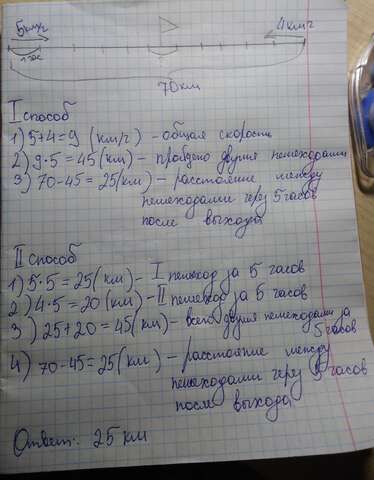 5км/ч 4км/ч
1час
70км
I способ
1) 5+4=9 (км/г) - общая скорость
2) 9·5=45(км) - пройдено двумя пешеходами
3) 70-45=25(км) - расстояние между
пешеходами через 5 часов
после выхода
II способ
1) 5·5=25(км) - I пешеход за 5 часов
2) 4·5=20(км) - II пешеход за 5 часов
3) 25+20=45(км) - всего двумя пешеходами за
5 часов
4) 70-45=25(км) - расстояние между
пешеходами через 5 часов
после выхода
Ответ: 25 км